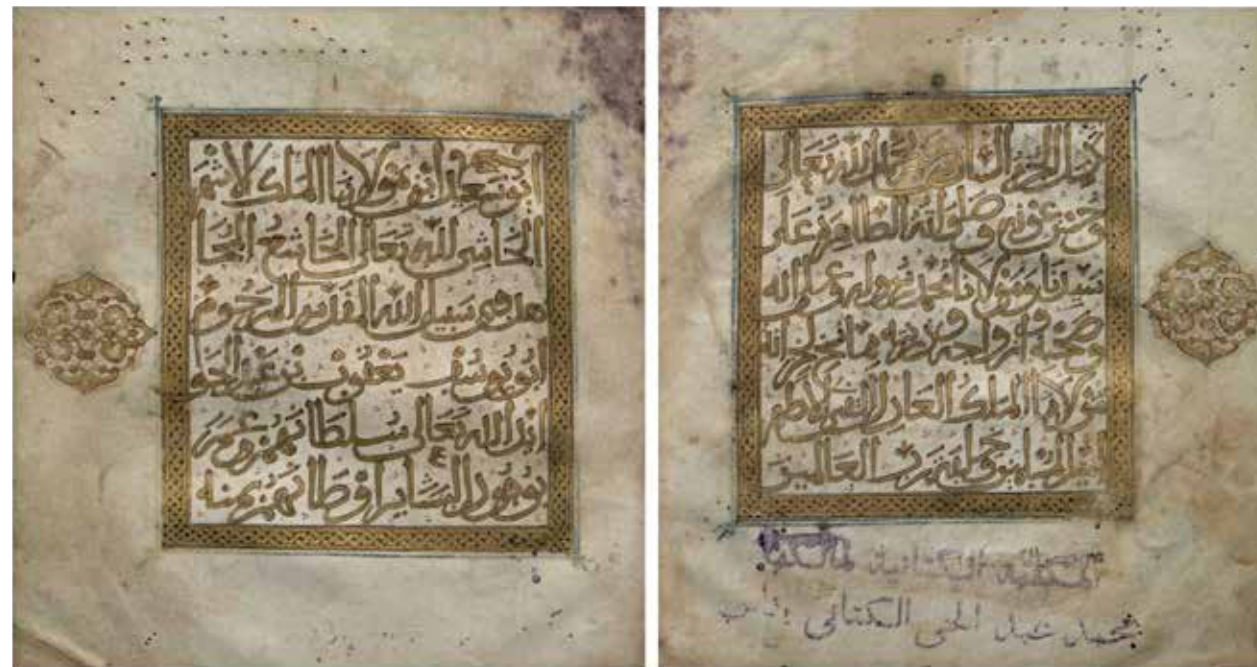 كمل الجزء بحمد الله تعالى
وحسن عونه وصلواته الطاهرة على
سيدنا ومولانا محمد رسوله وعلى اله
وصحبه وازواجه وذريته مما نسخ لخزانة
مولانا الملك العادل الملك الاطهر
امير المسلمين وخليفة رب العالمين
المكتبة الكتانية لمالكها
محمد عبد الحي الكتاني بفاس
ابو سعيد ابن مولانا الملك الاشهر
الخاشى لله تعالى الخاشع المجا
هد في سبيل الله المقدس المرحوم
ابو يوسف يعقوب بن عبد الحق
ايد الله تعالى سلطانهم وعمر
اوطانهم بمنه